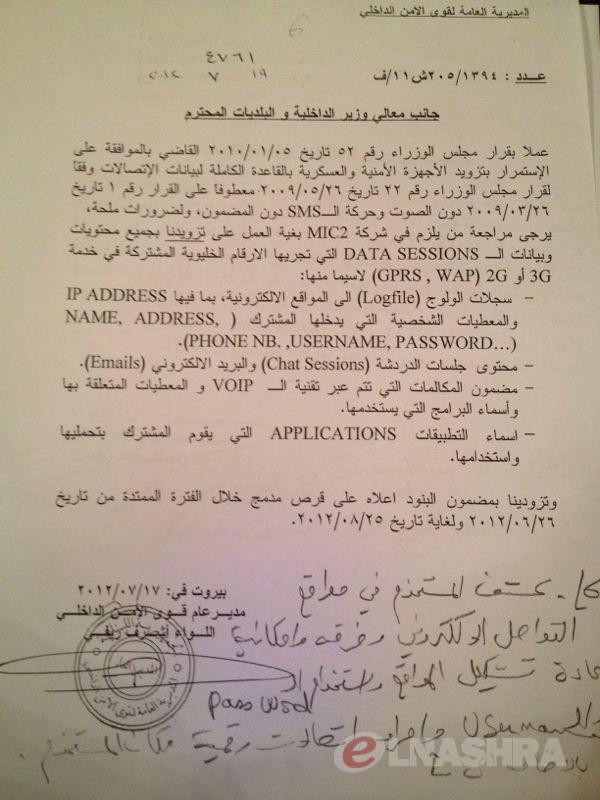 المديرية العامة لقوى الامن الداخلي
6
٤٧٦١
عـدد : ٢٠٥/١٣٩٤ش١١/ف
١٩ ٧ ٢٠١٢
جانب معالي وزير الداخلية و البلديات المحترم
عملا بقرار مجلس الوزراء رقم ٥٢ تاريخ ٢٠١٠/٠١/٠٥ القاضي بالموافقة على
الإستمرار بتزويد الأجهزة الأمنية والعسكرية بالقاعدة الكاملة لبيانات الإتصالات وفقاً
لقرار مجلس الوزراء رقم ٢٢ تاريخ ٢٠٠٩/٠٥/٢٦ معطوفاً على القرار رقم ١ تاريخ
٢٠٠٩/٠٣/٢٦ دون الصوت وحركة الـــSMS دون المضمون، ولضرورات ملحة،
يرجى مراجعة من يلزم في شركة MIC2 بغية العمل على تزويدنا بجميع محتويات
وبيانات الـــ DATA SESSIONS التي تجريها الارقام الخليوية المشتركة في خدمة
3G أو 2G (GPRS , WAP) لاسيما منها:
– سجلات الولوج (Logfile) الى المواقع الالكترونية، بما فيها IP ADDRESS
والمعطيات الشخصية التي يدخلها المشترك ( NAME, ADDRESS,
PHONE NB. ,USERNAME, PASSWORD…).
– محتوى جلسات الدردشة (Chat Sessions) والبريد الالكتروني (Emails).
– مضمون المكالمات التي تتم عبر تقنية الـــ VOIP و المعطيات المتعلقة بها
وأسماء البرامج التي يستخدمها.
– اسماء التطبيقات APPLICATIONS التي يقوم المشترك بتحمليها
واستخدامها.
وتزودينا بمضمون البنود اعلاه على قرص مدمج خلال الفترة الممتدة من تاريخ
٢٠١٢/٠٦/٢٦ ولغاية تاريخ ٢٠١٢/٠٨/٢٥.
بيروت في: ٢٠١٢/٠٧/١٧
مدير عام قوى الأمن الداخلي
اللواء أشرف ريفي
المستخدم في مواقع
التواصل الالكتروني
تشكيل المواقع واستخدام الـ
password
username
رقمية
ELNASHRA